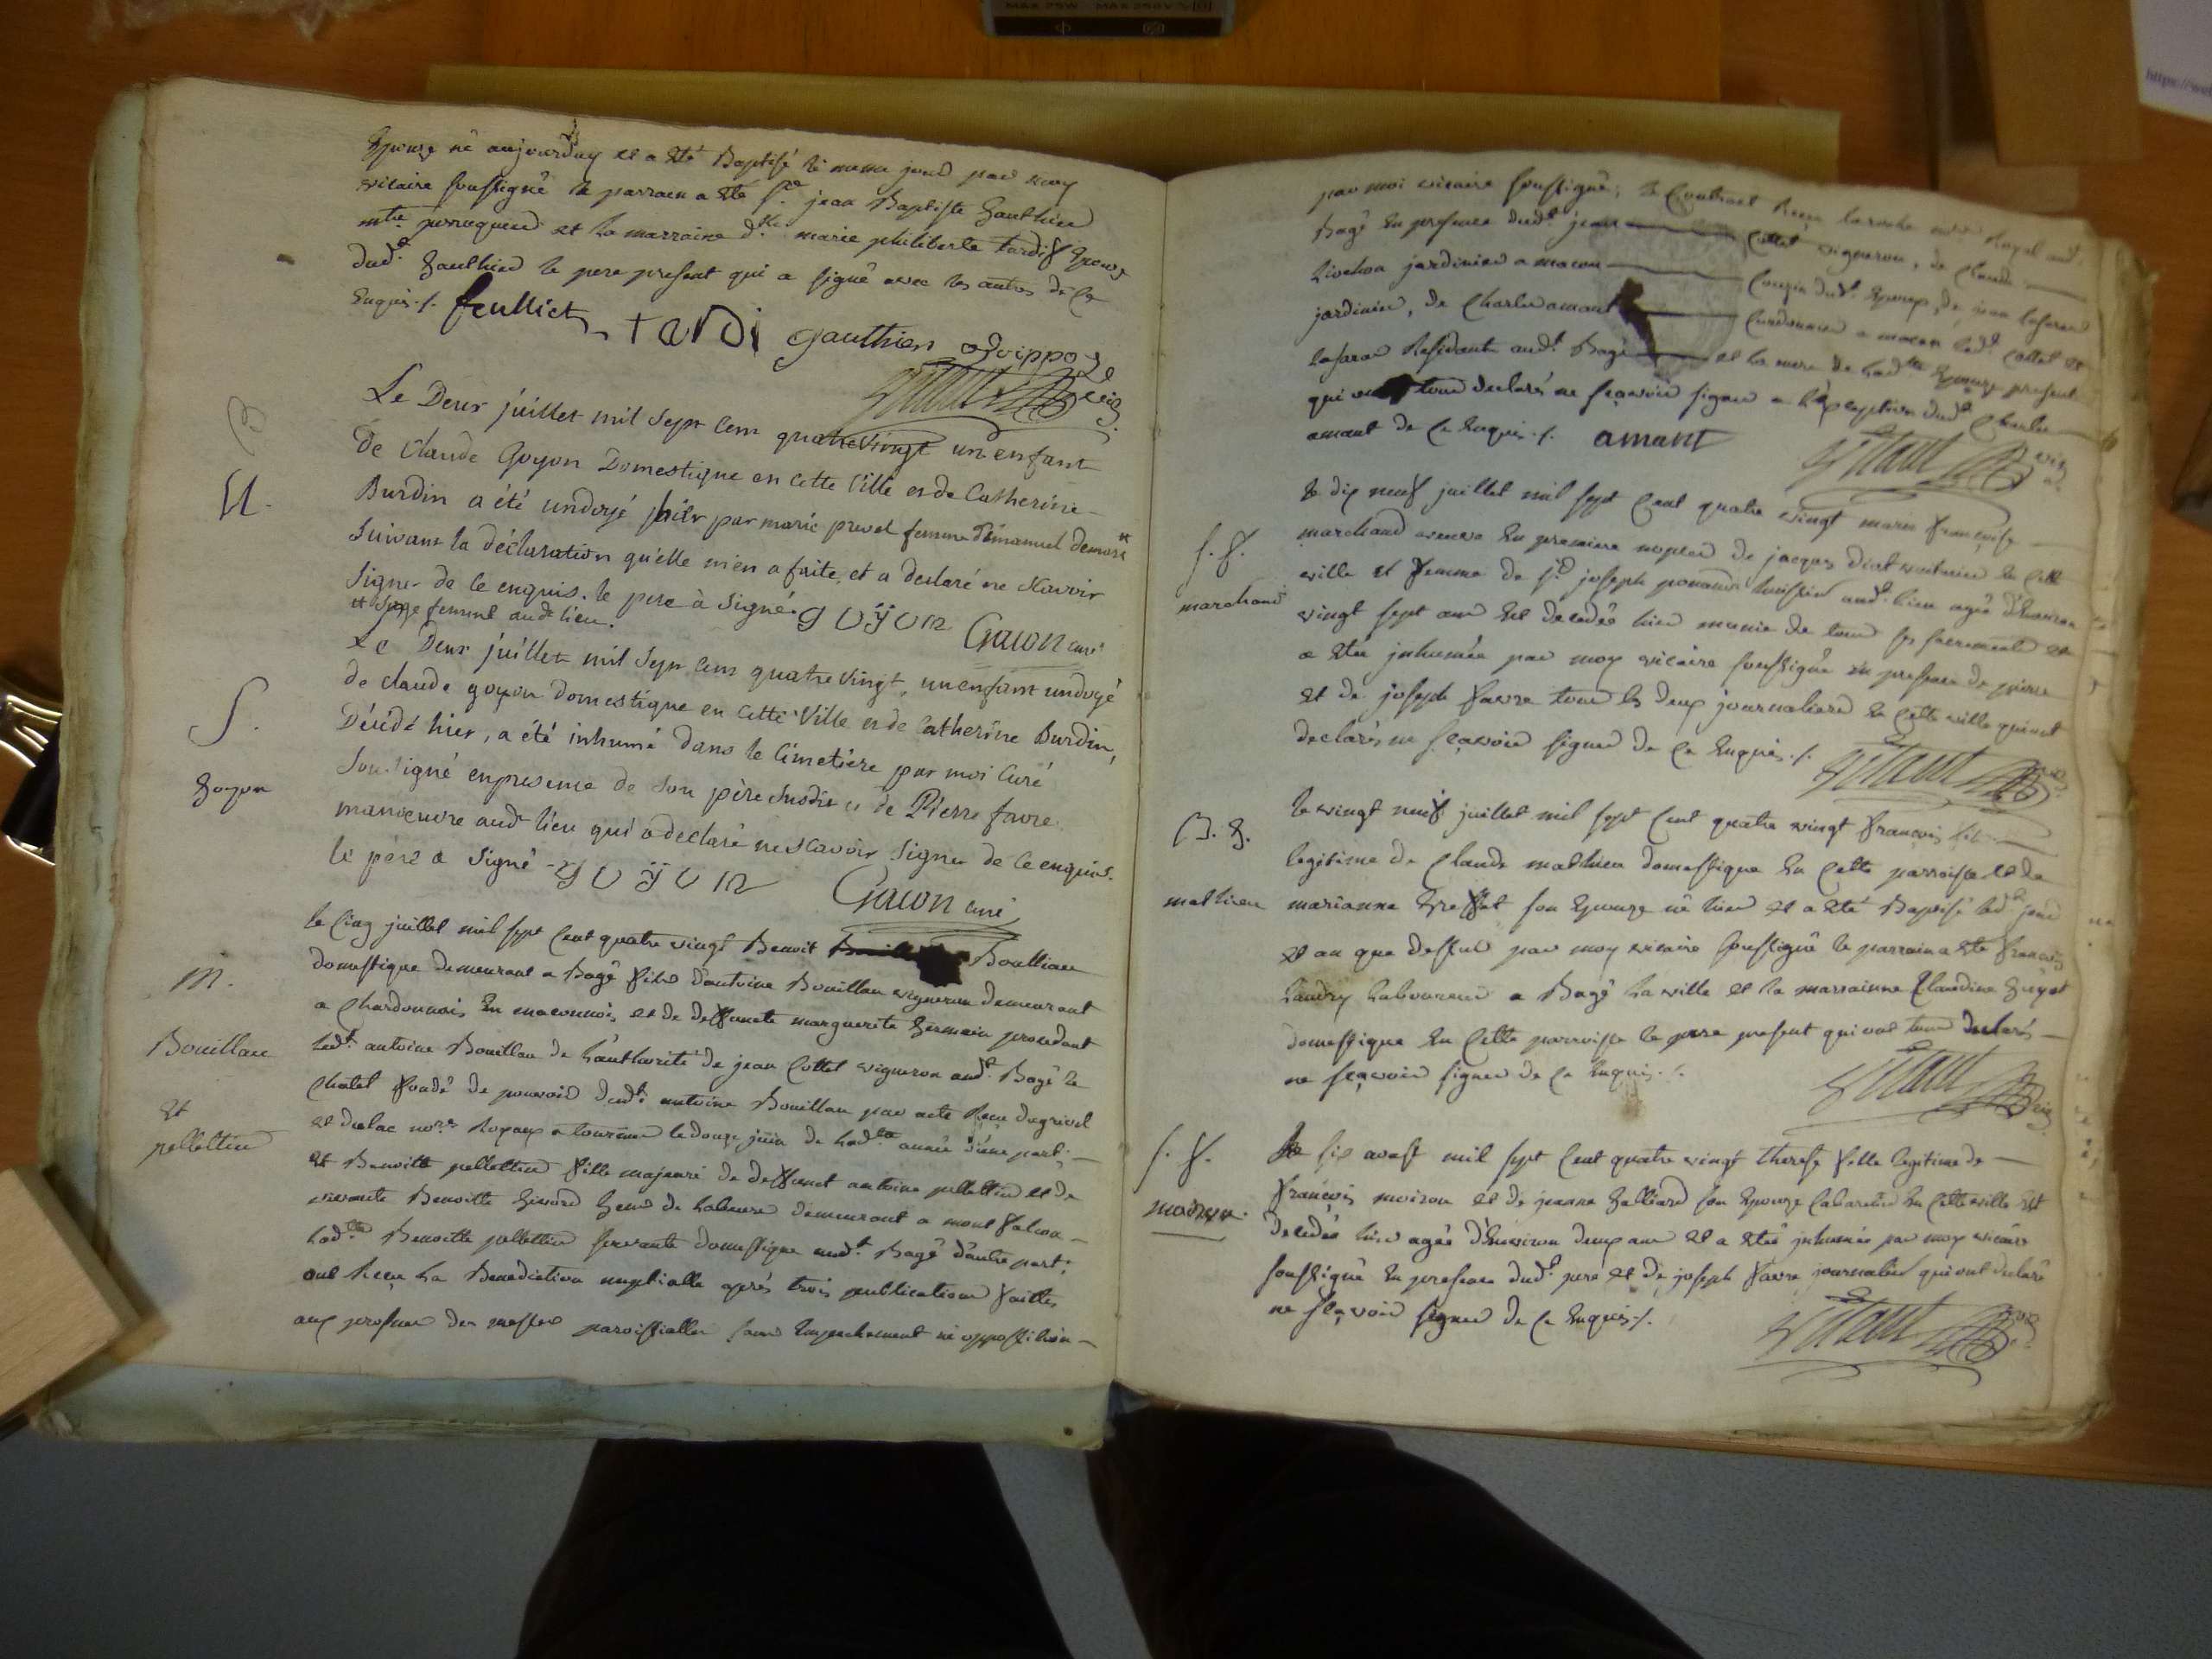 Epouze né aujourduy et a eté Baptisé le meme jour par moy
vicaire soussigné le parrain a eté sr. jean Baptiste Gauthier
mtre. perruquier et la marraine dlle. marie philiberte tardif Epouze
dudt. Gauthier le pere present qui a signé avec les autres de ce
Enquis ./. feulliet tardi gauthier
B
Le Deux juillet mil sept cent quatrevingt un enfant
De Claude Goyon Domestique en cette Ville et de Catherine
U.
Burdin a été undoyé hier par marie prevel femme d'Emanuel
Suivant la déclaration qu'elle m'en a faite, et a declaré ne scavoir
Signer de ce enquis. le pere à Signé. goyon Gacon curé
et sage femme audt lieu.
Le Deux juillet mil Sept cent quatrevingt, un enfant undoyé
de claude goyon domestique en cette Ville et de Catherine Burdin,
S.
Décédé hier, a été inhumé dans le Cimetière par moi Curé
Goyon
Soussigné en presence de son père Susdit et de Pierre favre
manoeuvre audt lieu qui a declaré ne Scavoir Signer de ce enquis.
le père a Signé - goyon Gacon curé
le Cinq juillet mil sept Cent quatre vingt Benoit Bouillau
M.
domestique demeurant a Bagé fils d'antoine Bouillau vigneron demeurant
a Chardonnois En maconnois et de deffuncte marguerite Germain procedant
Bouillau
ledt. antoine Bouillau de l'authorité de jean Collet vigneron audt. Bagé le
Chatel fondé de pouvoir dudt. antoine Bouillau par acte Recu
Et
et dulac nores. Royaux a tournus le douze juin de ladte. année d'une part
pelletier
et Benoitte pelletier fille majeure de deffunct antoine pelletier et de
vivante Benoitte Gens de Labeur demeurant a mont
ladtte. Benoitte pelletier servante domestique audt. Bagé d'autre part;
ont Reçu La Benediction nuptialle aprés trois publications faittes
aux prosnes des messes paroissialles sans Empechement ni oppossition
par moi vicaire soussigné; le Contract Reçu Royal audt.
Bagé En presence dudt. jean Collet vigneron, de Claude
jardinier a macon Cousin dudt. Epoux, de jean
jardinier, de Charle amant Cordonnier a macon ledt. Collet et
Residant audt. Bagé et la mere de ladtte Epouze present
qui ont tous declarés ne sçavoir signer a l'Exception dudt Charle
amant de ce Enquis ./. amant
le dix neuf juillet mil sept Cent quatre vingt marie françoise
s. f.
marchand veuve En premiere nopces de jacques voiturier En cette
marchand
ville et femme de sr. joseph huissier audt. lieu agée d'Environ
vingt sept ans Est decedée hier munie de tous ses sacrements et
a eté inhumée par moy vicaire soussigné En presence de pierre
et de joseph favre tous les deux journaliers En cette ville qui ont
declarés ne sçavoir signer de ce Enquis ./.
le vingt neuf juillet mil sept Cent quatre vingt francois fils
B. g.
legitime de Claude mathieu domestique En Cette parroisse et de
mathieu
marianne Greffet son Epouze né hier et a eté Baptisé ledt. jour
et an que dessus par moy vicaire soussigné le parrain a eté francois
Landry Laboureur a Bagé La ville et la marrainne Claudine Guyot
domestique En Cette parroisse le pere present qui ont tous declarés
ne sçavoir signer de ce Enquis ./.
s. f.
le six aoust mil sept Cent quatre vingt therese fille legitime de
moiron
francois moiron et de jeanne Galliard son Epouze Cabaretier En Cette ville Est
decedée hier agée d'Environ deux ans et a etée inhumée par moy vicaire
soussigné En presence dudt. pere et de joseph favre journalier qui ont declaré
ne sçavoir signer de ce Enquis ./.